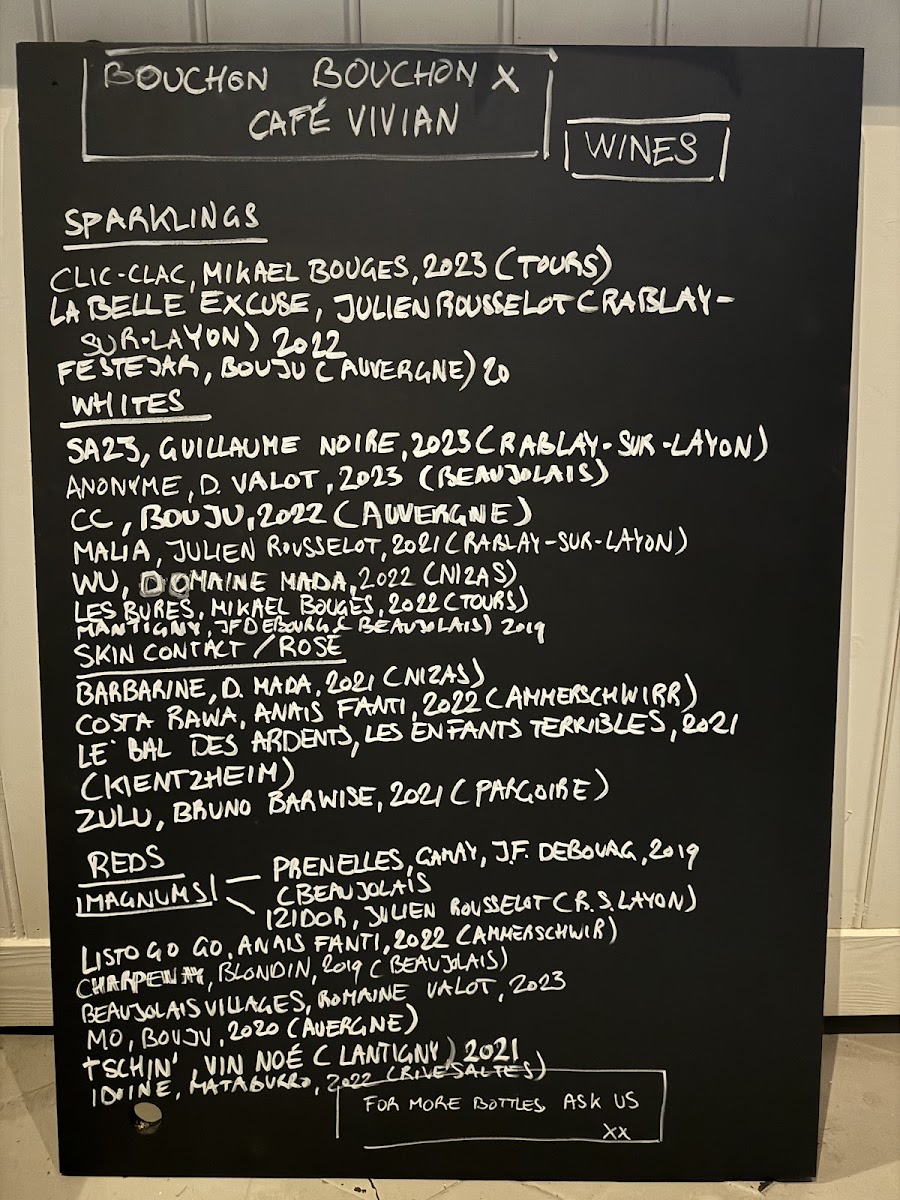 BOUCHON BOUCHON X
CAFÉ VIVIAN
WINES
SPARKLINGS
CLIC-CLAC, MIKAEL BOUGES, 2023 (TOURS)
LA BELLE EXCUSE, JULIEN ROUSSELOT (RABLAY-
SUR-LAYON) 2022
FESTEJAR, BOUJU (AUVERGNE) 20
WHITES
SA23, GUILLAUME NOIRE, 2023 (RABLAY-SUR-LAYON)
ANONYME, D. VALOT, 2023 (BEAUJOLAIS)
CC, BOUJU, 2022 (AUVERGNE)
MALIA, JULIEN ROUSSELOT, 2021 (RABLAY-SUR-LAYON)
WU, DOMAINE MADA, 2022 (NIZAS)
LES BURES, MIKAEL BOUGES, 2022 (TOURS)
MANTIGNY, JF DEBOURG ( BEAUJOLAIS) 2019
SKIN CONTACT / ROSÉ
BARBARINE, D. MADA, 2021 (NIZAS)
COSTA RAWA, ANAIS FANTI, 2022 (AMMERSCHWIRR)
LE BAL DES ARDENTS, LES ENFANTS TERRIBLES, 2021
(KIENTZHEIM)
ZULU, BRUNO BARWISE, 2021 ( PARGOIRE)
REDS
MAGNUMS
PRENELLES, GAMAY, J.F. DEBOURG, 2019
(BEAUJOLAIS
IZIDOR, JULIEN ROUSSELOT (R.S. LAYON)
LISTO GO GO, ANAIS FANTI, 2022 (AMMERSCHWIR)
BLONDIN, 2019 ( BEAUJOLAIS)
BEAUJOLAIS VILLAGES, ROMAINE VALOT, 2023
MO, BOUJU, 2020 (AUERGNE)
TSCHIN', VIN NOÉ ( LANTIGNY) 2021
MATABURRO, 2022 (RIVESALTES)
FOR MORE BOTTLES, ASK US
XX